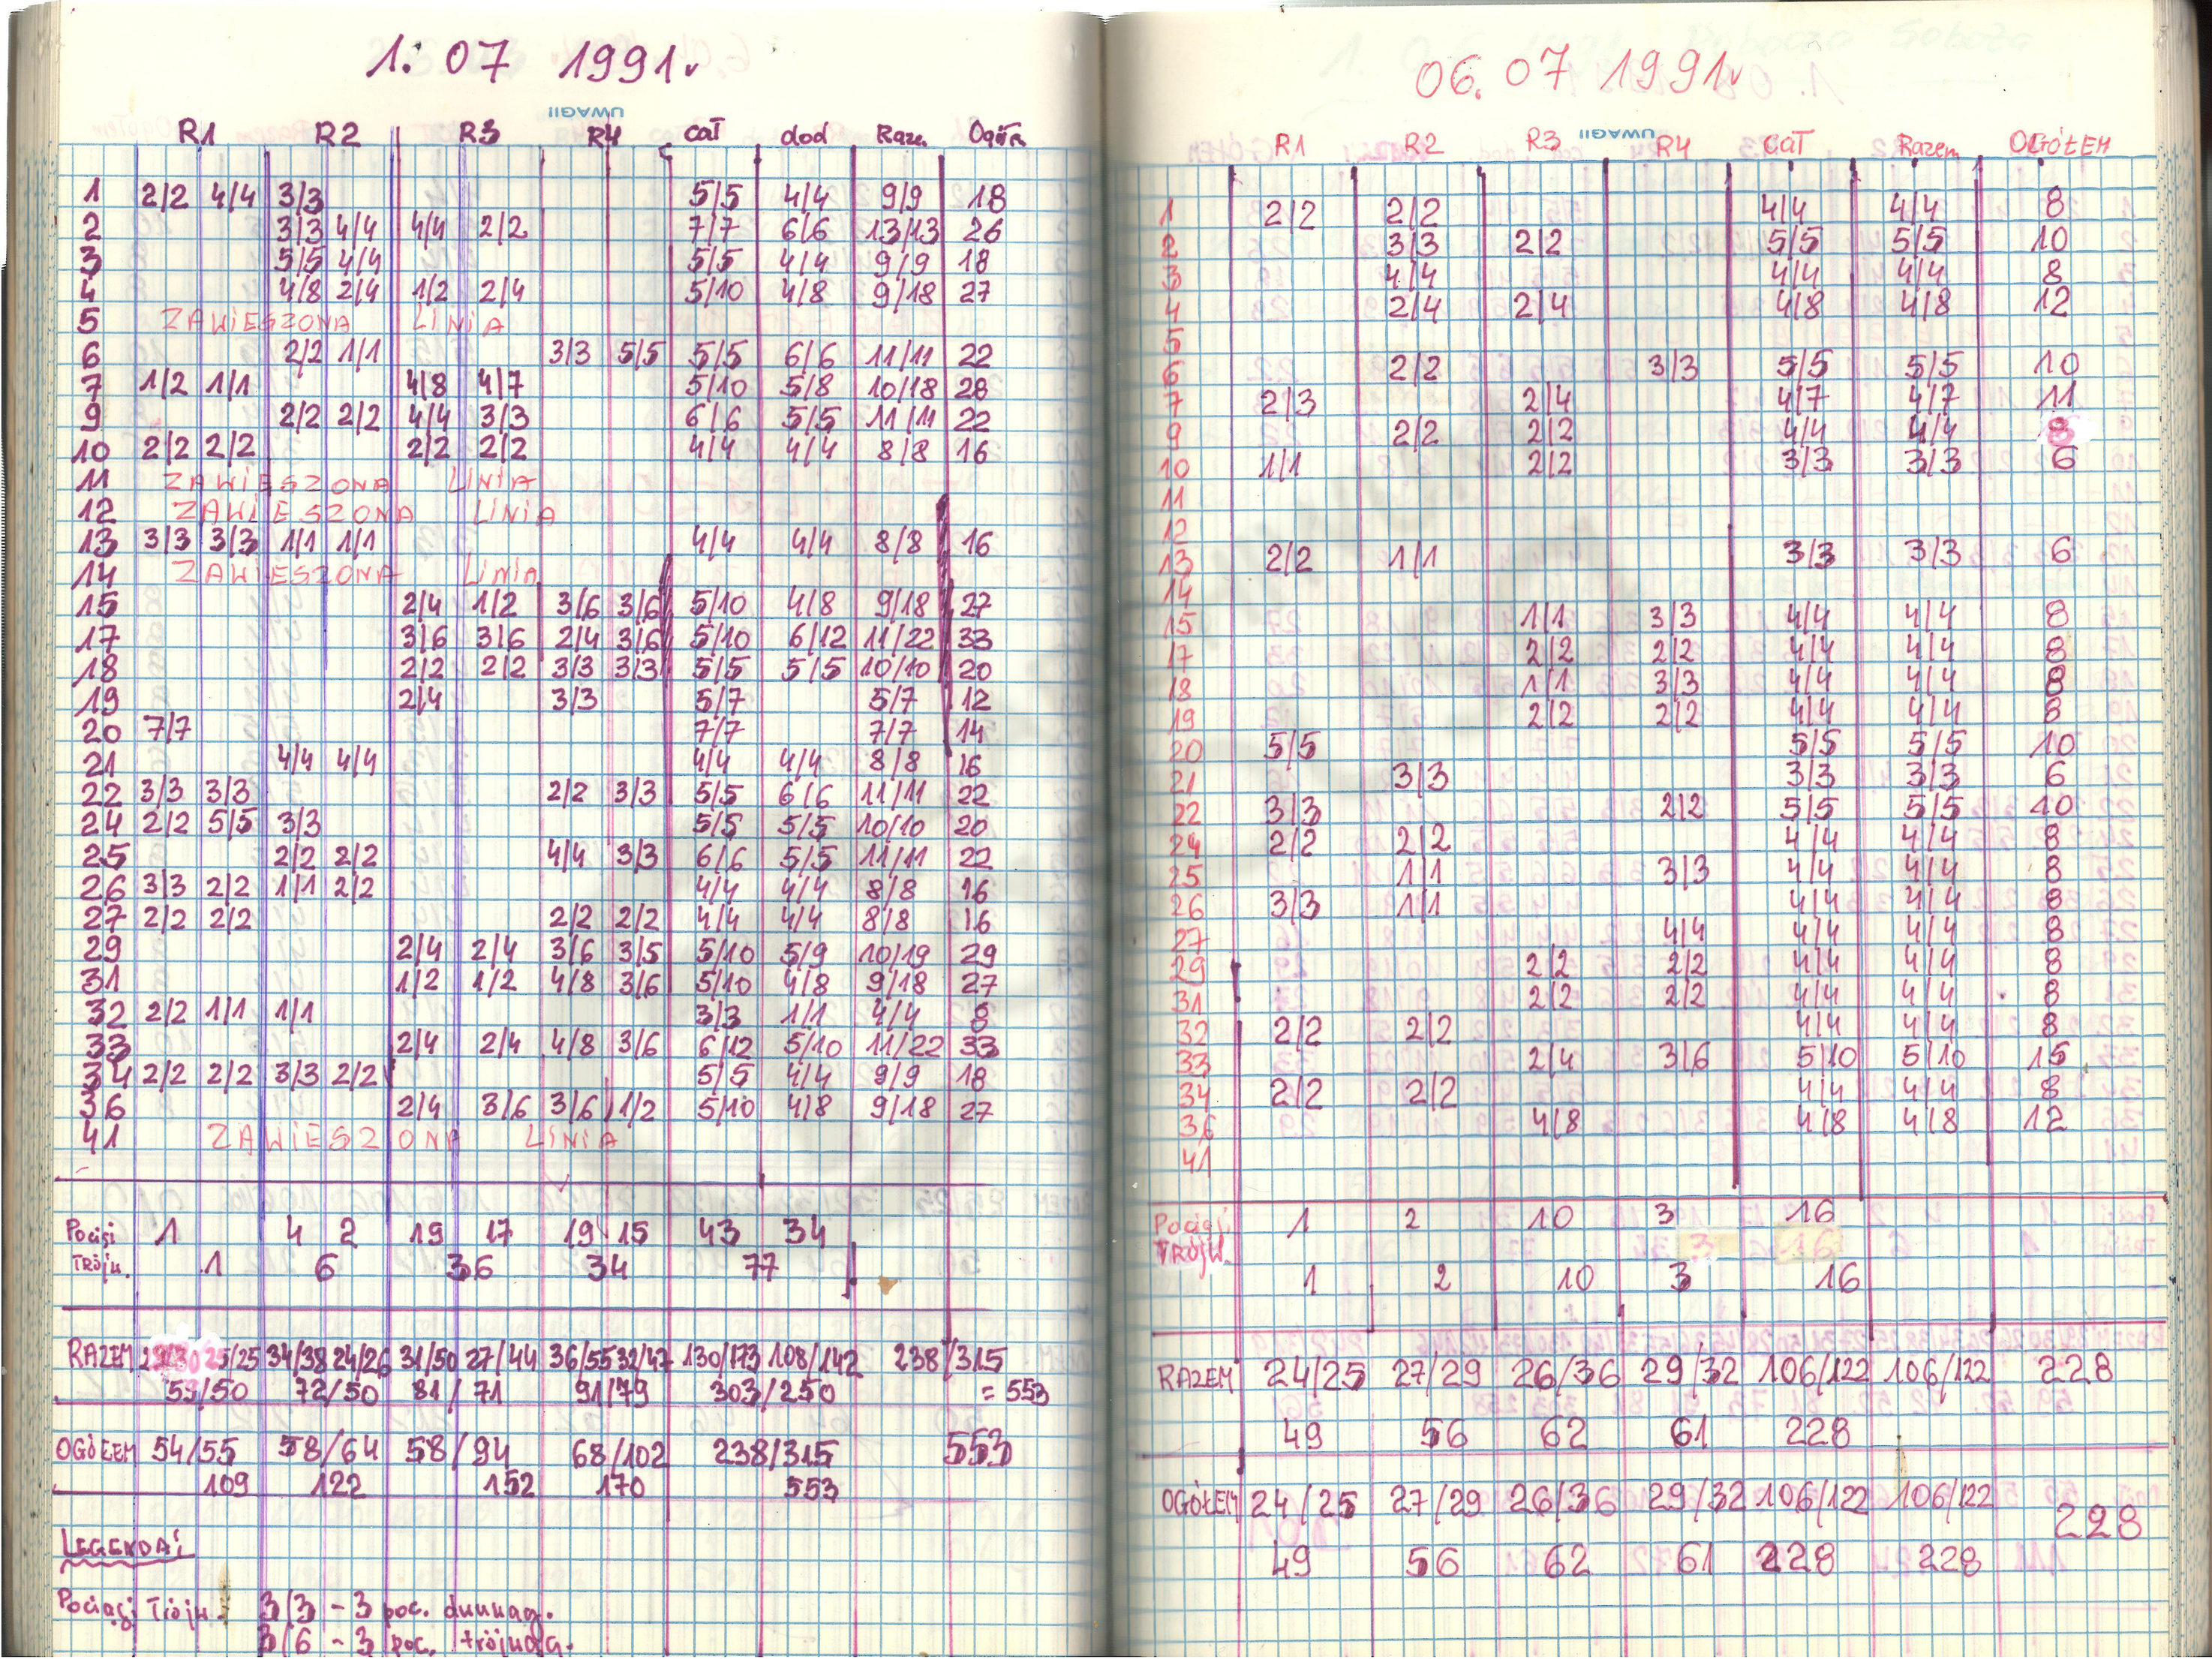 1. 07 1991r
UWAGI!
R1 R2 R3 R4 cał dod Raze. Ogółe
1 2/2 4/4 3/3 5/5 4/4 9/9 18
2 3/3 4/4 4/4 2/2 7/7 6/6 13/13 26
3 5/5 4/4 5/5 4/4 9/9 18
4 4/8 2/4 1/2 2/4 5/10 4/8 9/18 27
5 ZAWIESZONA LINIA
6 2/2 1/1 3/3 5/5 5/5 6/6 11/11 22
7 1/2 1/1 4/8 4/7 5/10 5/8 10/18 28
9 2/2 2/2 4/4 3/3 6/6 5/5 11/11 22
10 2/2 2/2 2/2 2/2 4/4 4/4 8/8 16
11 ZAWIESZONA LINIA
12 ZAWIESZONA LINIA
13 3/3 3/3 1/1 1/1 4/4 4/4 8/8 16
14 ZAWIESZONA LINIA
15 2/4 1/2 3/6 3/6 5/10 4/8 9/18 27
17 3/6 3/6 2/4 3/6 5/10 6/12 11/22 33
18 2/2 2/2 3/3 3/3 5/5 5/5 10/10 20
19 2/4 3/3 5/7 5/7 12
20 7/7 7/7 7/7 14
21 4/4 4/4 4/4 4/4 8/8 16
22 3/3 3/3 2/2 3/3 5/5 6/6 11/11 22
24 2/2 5/5 3/3 5/5 5/5 10/10 20
25 2/2 2/2 4/4 3/3 6/6 5/5 11/11 22
26 3/3 2/2 1/1 2/2 4/4 4/4 8/8 16
27 2/2 2/2 2/2 2/2 4/4 4/4 8/8 16
29 2/4 2/4 3/6 3/5 5/10 5/9 10/19 29
31 1/2 1/2 4/8 3/6 5/10 4/8 9/18 27
32 2/2 1/1 1/1 3/3 1/1 4/4 8
33 2/4 2/4 4/8 3/6 6/12 5/10 11/22 33
34 2/2 2/2 3/3 2/2 5/5 4/4 9/9 18
36 2/4 3/6 3/6 1/2 5/10 4/8 9/18 27
41 ZAWIESZONA LINIA
Pociągi 1 4 2 19 17 19 15 43 34
Trójw. 1 6 36 34 77
RAZEM 29/30 25/25 34/38 24/26 31/50 27/44 36/55 32/47 130/173 108/142 238/315
59/50 72/50 81/71 91/79 303/250 = 553
OGÓŁEM 54/55 58/64 58/94 68/102 238/315 553
109 122 152 170 553
LEGENDA:
Pociągi Trójw. 3/3 - 3 poc. dwuwag.
3/6 - 3 poc. trójwag.
06. 07 1991r
UWAGI!
R1 R2 R3 R4 cał Razem OGÓŁEM
1 2/2 2/2 4/4 4/4 8
2 3/3 2/2 5/5 5/5 10
3 4/4 4/4 4/4 8
4 2/4 2/4 4/8 4/8 12
5
6 2/2 3/3 5/5 5/5 10
7 2/3 2/4 4/7 4/7 11
9 2/2 2/2 4/4 4/4 8
10 1/1 2/2 3/3 3/3 6
11
12
13 2/2 1/1 3/3 3/3 6
14
15 1/1 3/3 4/4 4/4 8
17 2/2 2/2 4/4 4/4 8
18 1/1 3/3 4/4 4/4 8
19 2/2 2/2 4/4 4/4 8
20 5/5 5/5 5/5 10
21 3/3 3/3 3/3 6
22 3/3 2/2 5/5 5/5 10
24 2/2 2/2 4/4 4/4 8
25 1/1 3/3 4/4 4/4 8
26 3/3 1/1 4/4 4/4 8
27 4/4 4/4 4/4 8
29 2/2 2/2 4/4 4/4 8
31 2/2 2/2 4/4 4/4 8
32 2/2 2/2 4/4 4/4 8
33 2/4 3/6 5/10 5/10 15
34 2/2 2/2 4/4 4/4 8
36 4/8 4/8 4/8 12
41
Pociągi 1 2 10 3 16
TRÓJW. 3 16
1 2 10 3 16
RAZEM 24/25 27/29 26/36 29/32 106/122 106/122 228
49 56 62 61 228
OGÓŁEM 24/25 27/29 26/36 29/32 106/122 106/122 228
49 56 62 61 228 228